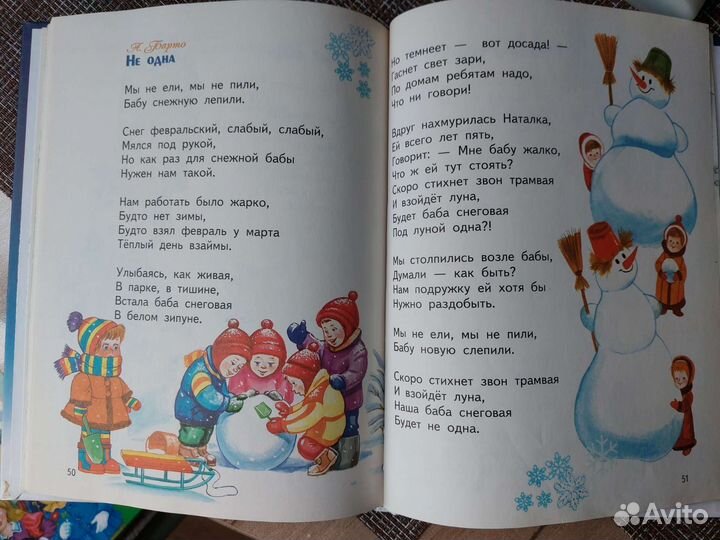 А. Барто
НЕ ОДНА
Мы не ели, мы не пили,
Бабу снежную лепили.
Снег февральский, слабый, слабый,
Мялся под рукой,
Но как раз для снежной бабы
Нужен нам такой.
Нам работать было жарко,
Будто нет зимы,
Будто взял февраль у марта
Тёплый день взаймы.
Улыбаясь, как живая,
В парке, в тишине,
Встала баба снеговая
В белом зипуне.
50
Но темнеет — вот досада! —
Гаснет свет зари,
По домам ребятам надо,
Что ни говори!
Вдруг нахмурилась Наталка,
Ей всего лет пять,
Говорит: — Мне бабу жалко,
Что ж ей тут стоять?
Скоро стихнет звон трамвая
И взойдёт луна,
Будет баба снеговая
Под луной одна?!
Мы столпились возле бабы,
Думали — как быть?
Нам подружку ей хотя бы
Нужно раздобыть.
Мы не ели, мы не пили,
Бабу новую слепили.
Скоро стихнет звон трамвая
И взойдёт луна,
Наша баба снеговая
Будет не одна.
51
Avito